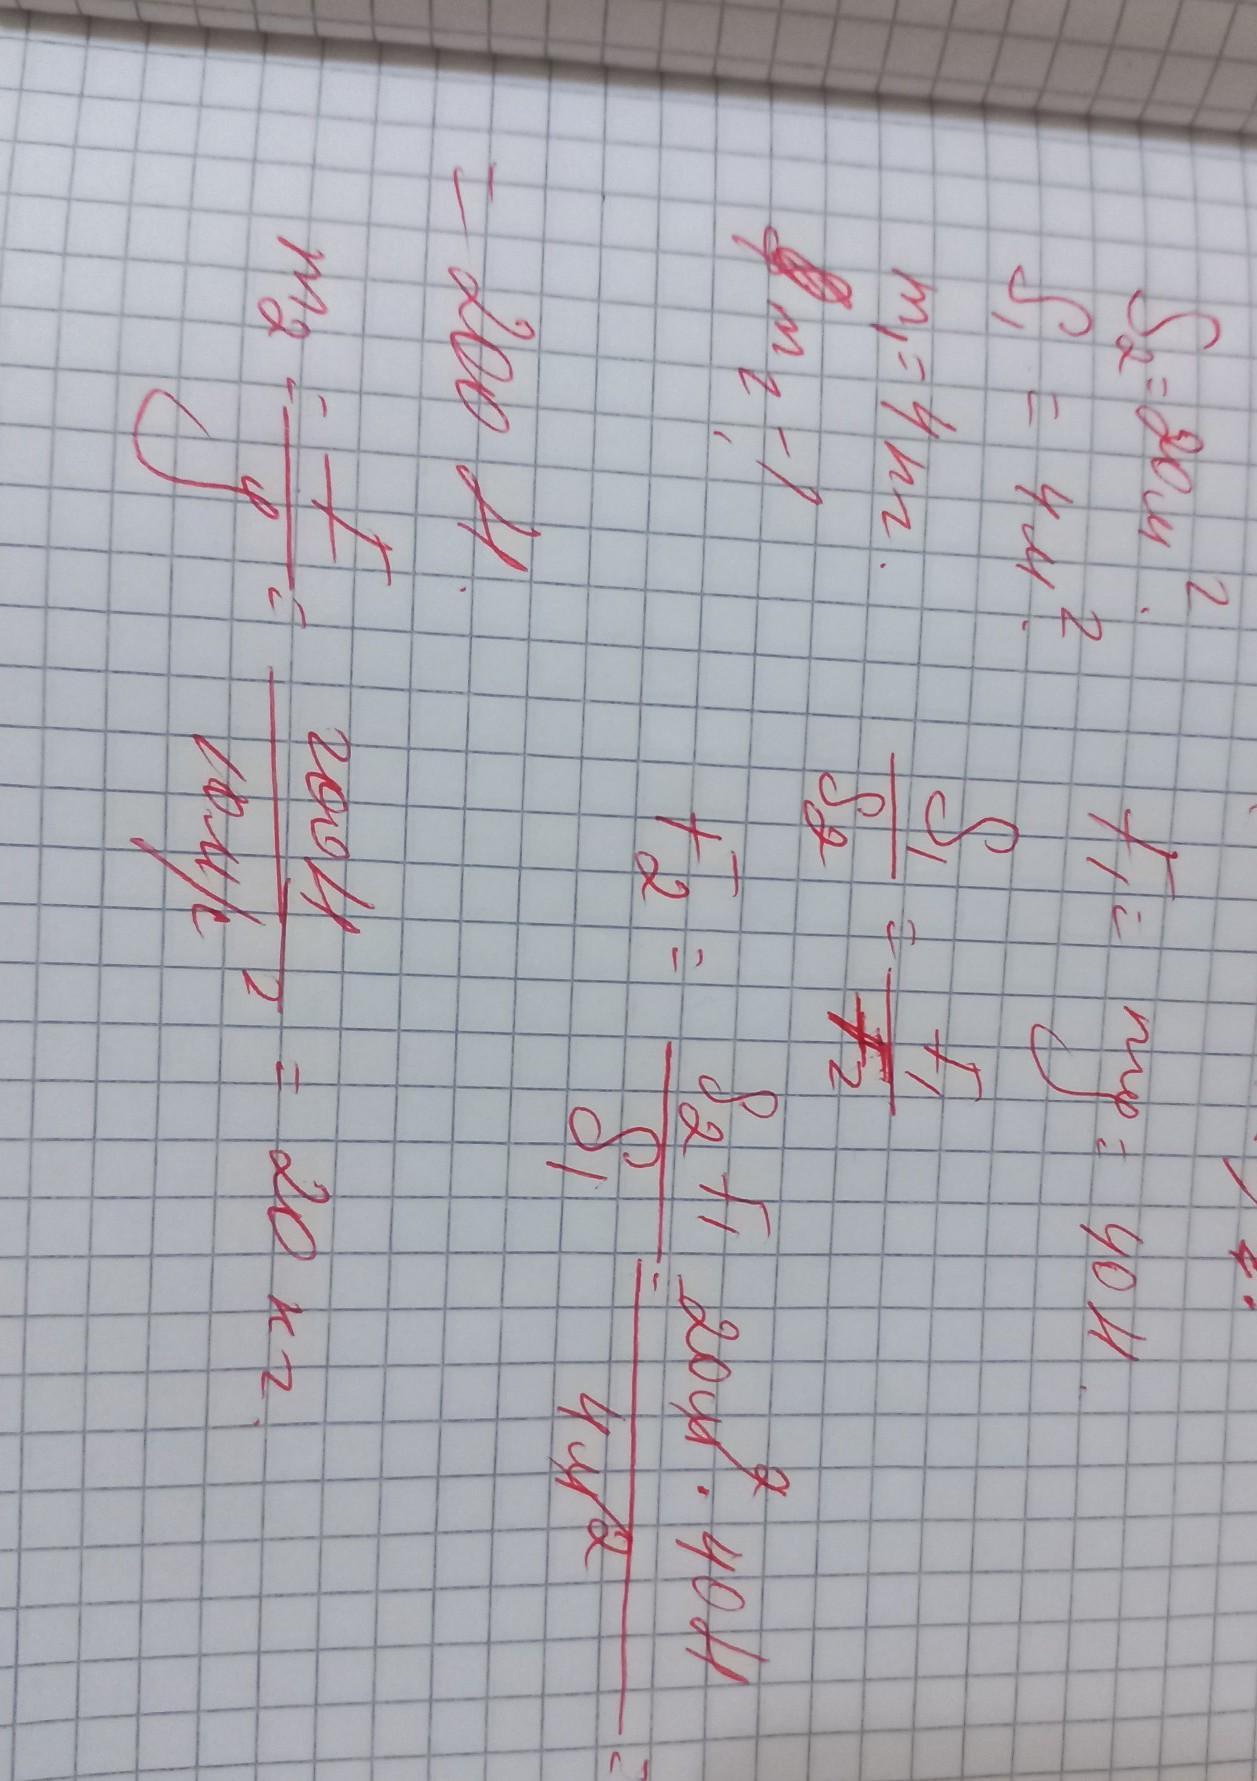 S₂ = 20 м².
S₁ = 4 м².
m₁ = 4 кг.
m₂ - ?
F₁ = mg = 40 Н.
S₁/S₂ = F₁/F₂
F₂ = S₂F₁/S₁ = 20 м² · 40 Н / 4 м² =
= 200 Н.
m₂ = F/g = 200 Н / 10 м/с² = 20 кг.